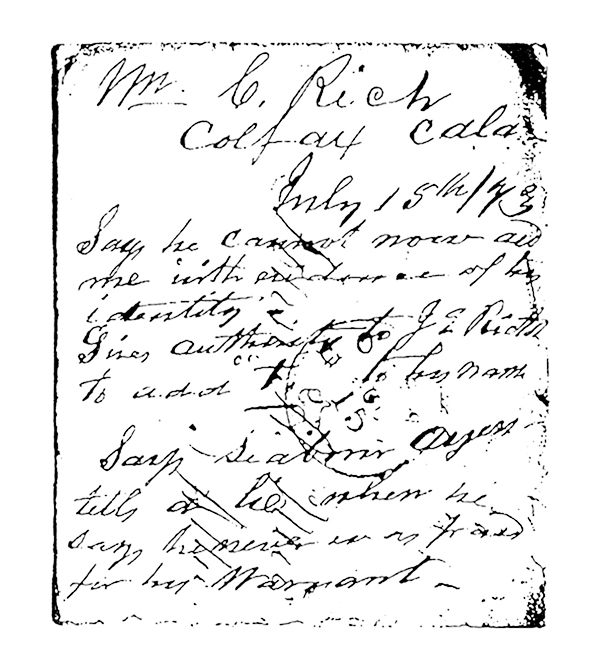 Wm. C. Rich
Colfax Cala
July 15th/73
Says he cannot now aid
me with evidence of his
identity.
Gives authority to J E Rich
to add "t" to his name
Says Seaborn Ayers
tells a lie when he
says he never was paid
for his Warrant –